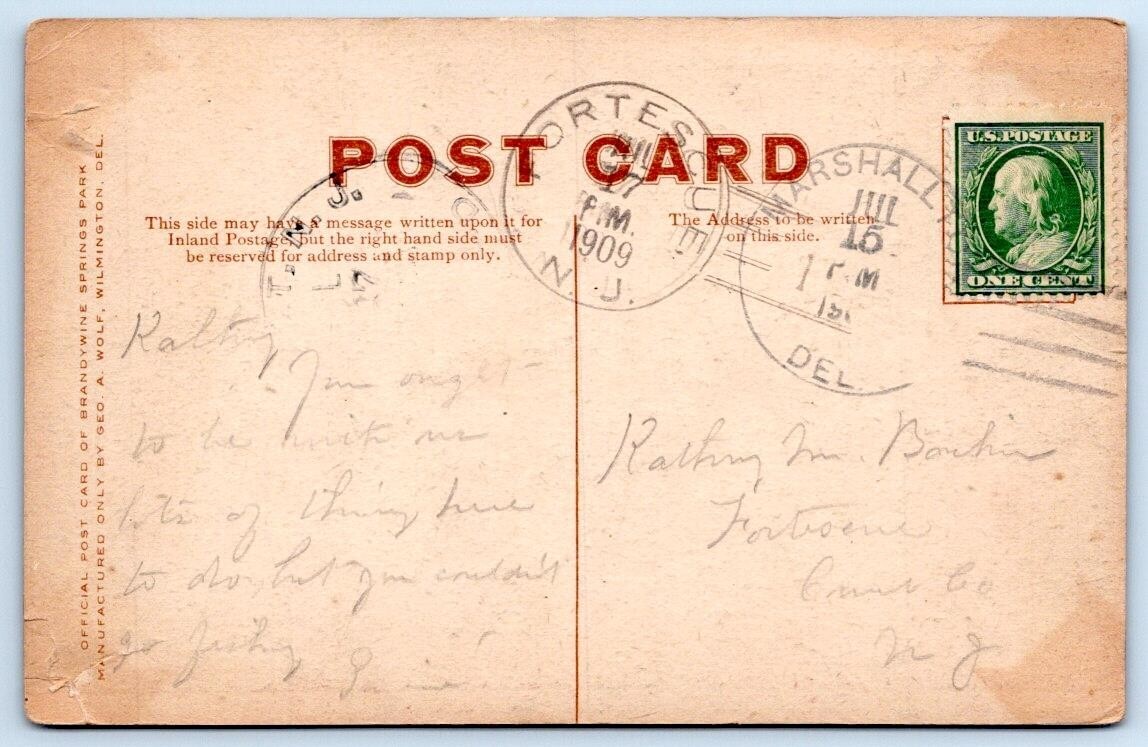 POST CARD
This side may have a message written upon it for
Inland Postage, but the right hand side must
be reserved for address and stamp only.
The Address to be written
on this side.
OFFICIAL POST CARD OF BRANDYWINE SPRINGS PARK
MANUFACTURED ONLY BY GEO. A. WOLF, WILMINGTON, DEL.
FORTESCUE
JUL
17
P.M.
1909
N.J.
MARSHALL
JUL
15
M
DEL.
N.J.
U.S. POSTAGE
ONE CENT
You ought
to be with us
lots of things here
to do, but you couldn't
go fishing
Kathryn M.
Fortescue
Cumb Co
N J